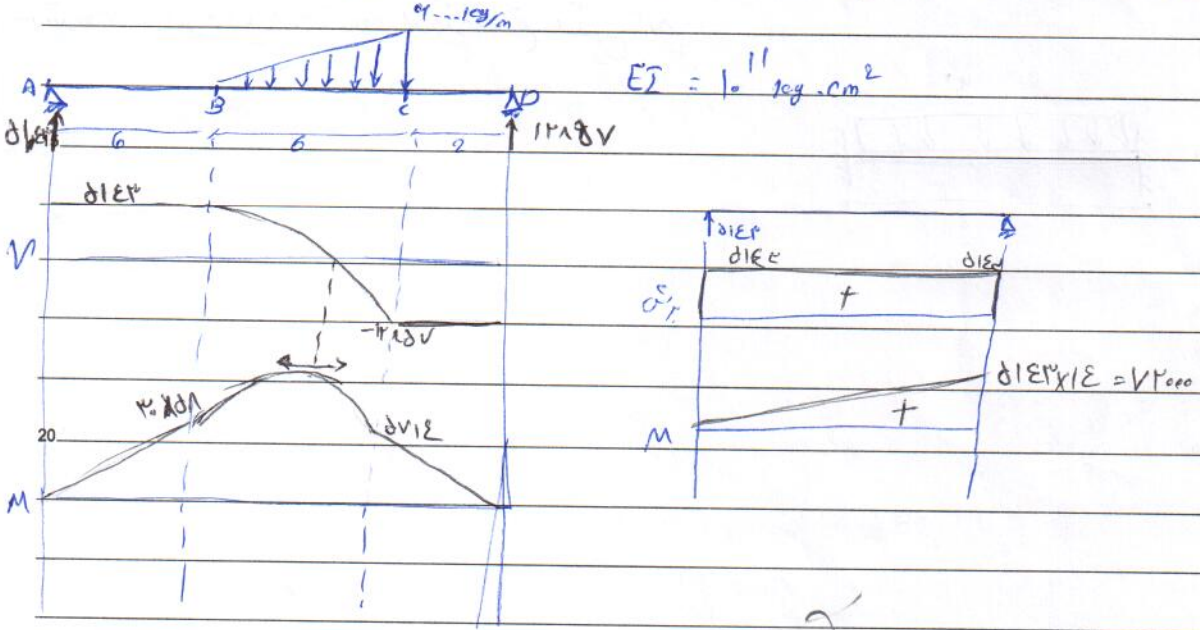 ۶۰۰۰ kg/m
A B C D
EI = ۱۰¹¹ kg.cm²
6 6 2
۵۱۴۳ ۱۲۸۵۷
۵۱۴۳
V
-۱۲۸۵۷
۳۰۸۵۸
۵۷۱۴
20
M
۵۱۴۳
۵۱۴۳ ۵۱۴۳
+
۵۱۴۳×۱۴ = ۷۲۰۰۰
+
M